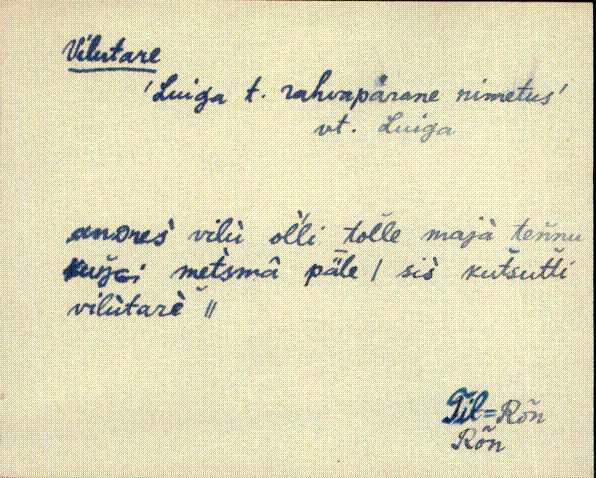 Vilutare
'Luiga t. rahvapärane nimetus'
vt. Luiga
andreš vilù oĺli tol̆le majà teňnu
metsmâ päle / sis kut̆sut̆ti
vilùtarè"
Til=Rõn
Rõn